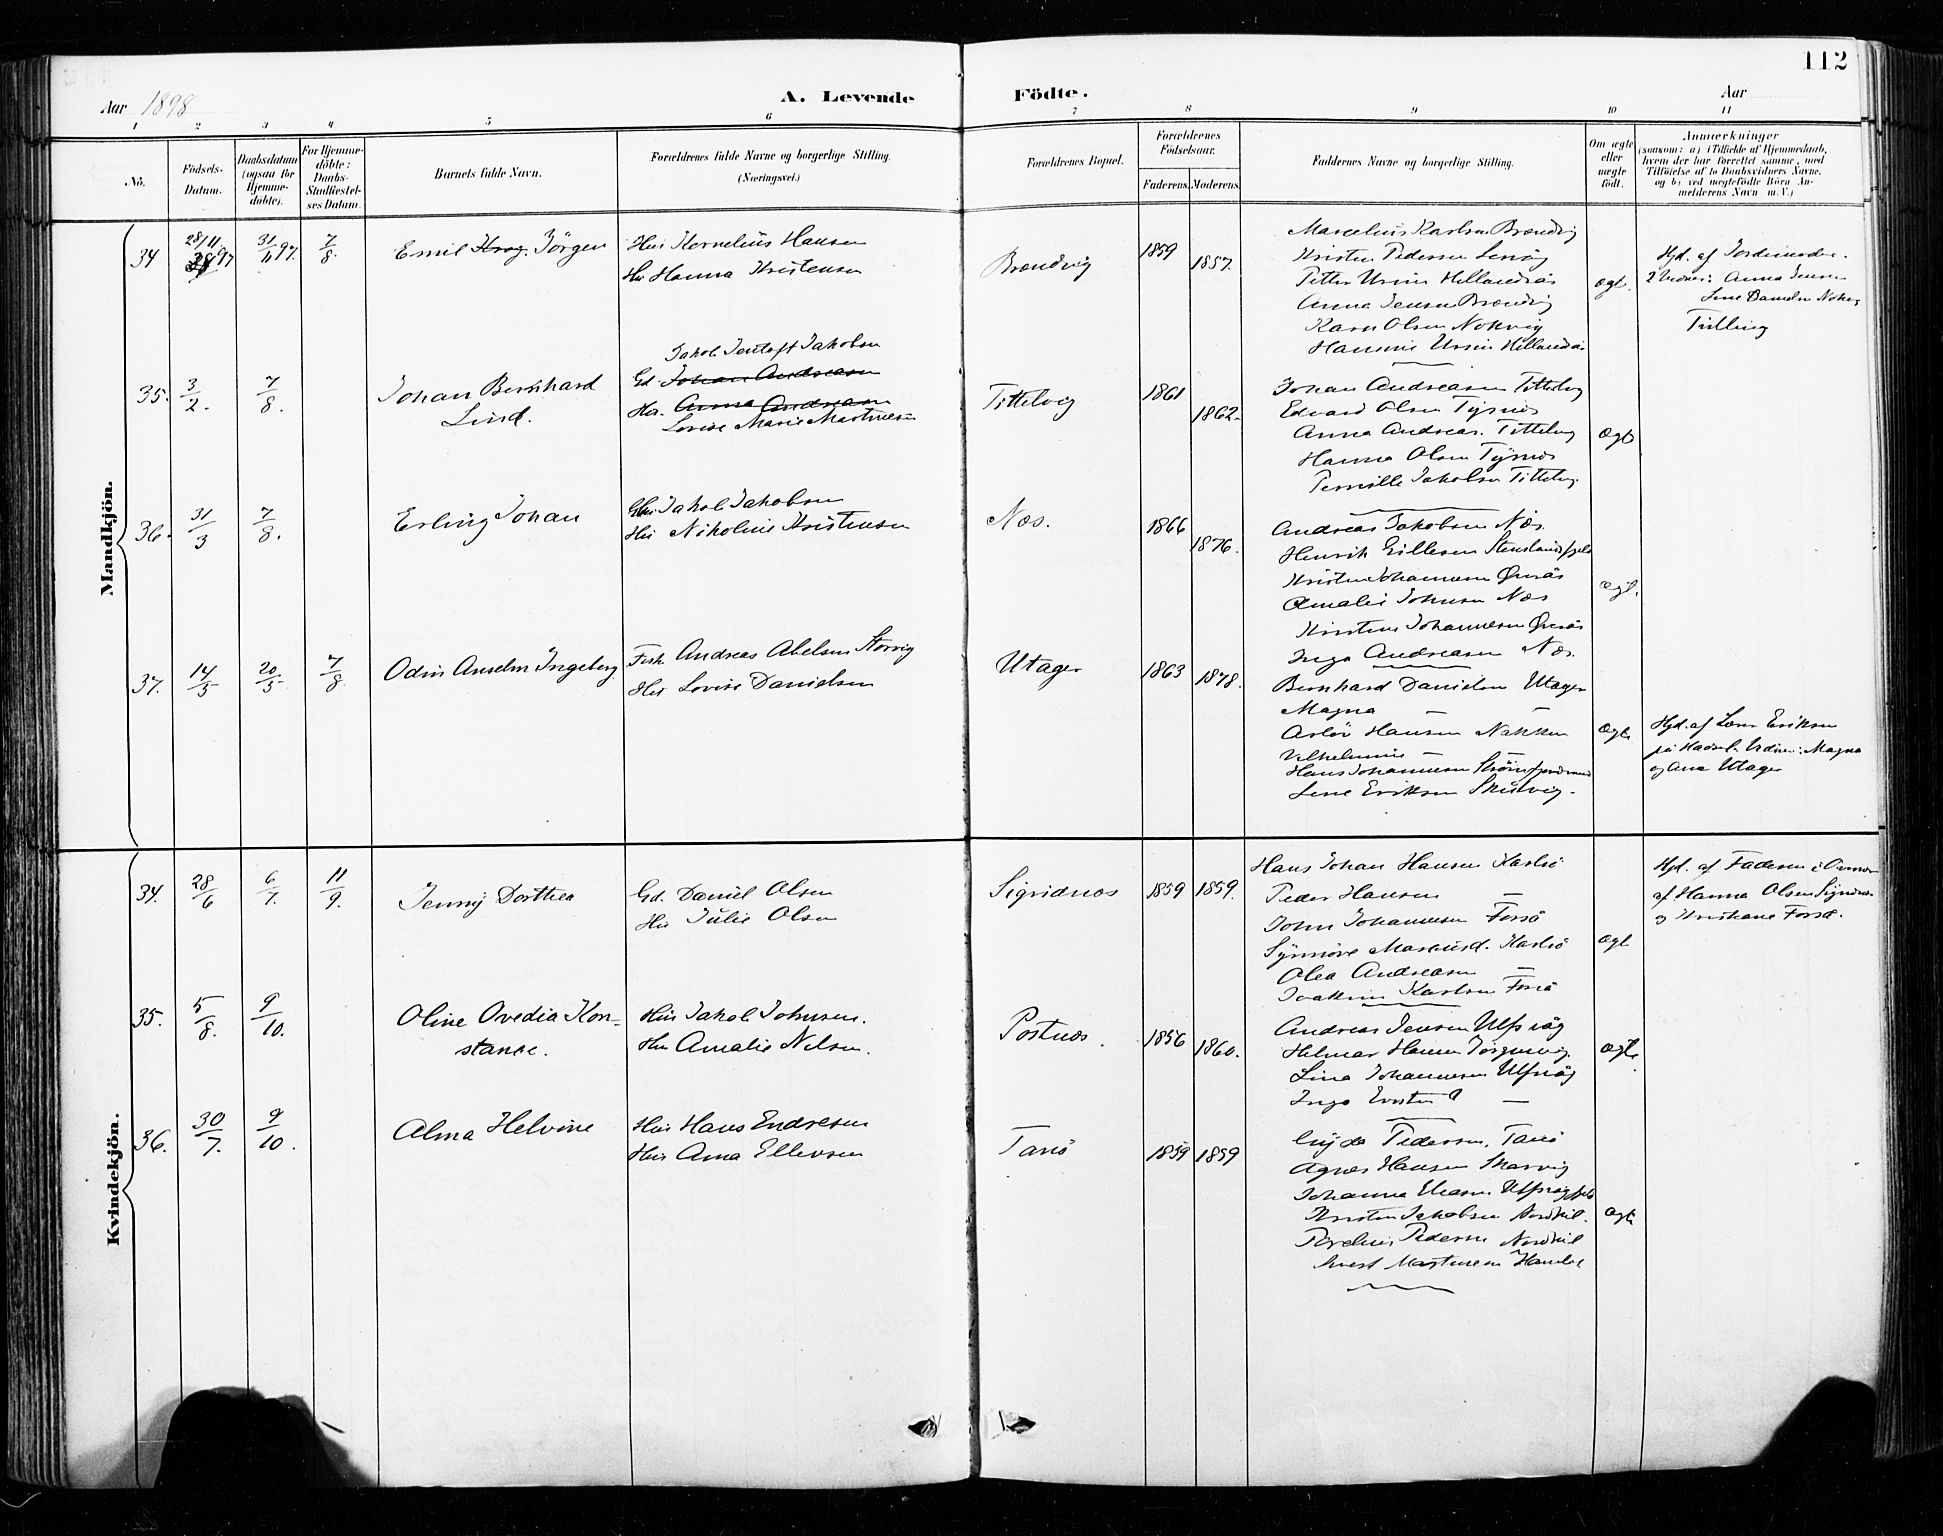 112
Aar 1898
A. Levende
Födte.
Aar
1 2 3 4 5 6 7 8 9 10 11
No.
Födsels-
Datum.
Daabsdatum
(ogsaa for
Hjemme-
döbte).
For Hjemme-
döbte:
Daabs-
Stadfæstel-
ses Datum.
Barnets fulde Navn.
Forældrenes fulde Navne og borgerlige Stilling.
(Næringsvei.)
Forældrenes Bopæl.
Forældrenes
Födselsaar.
Faderens. Moderens.
Faddernes Navne og borgerlige Stilling.
Om ægte
eller
uægte
födt.
Anmærkninger
(saasom: a) i Tilfælde af Hjemmedaab,
hvem der har forrettet samme, med
Tilföielse af to Daabsvidners Navne.
og b) ved uegtefödte Börn An-
melderens Navn m. V.)
Mandkjön.
34 28/11 97 31/11 97. 7/8. Emil Jörgen
Hus Kornelius Hansen
Hu Hanna Kristensen
Brændvig 1859 1857.
Marcelius Karlsen Brændvig
Kristen Pedersen
Petter Ursin
Anna Jensen Brændvig
Karn Olsen Nokvig
Ursin
ægt.
Hjd. af Jordemoder.
2 Vidner: Anna Jensen
Lene Danielsen
Tvilling
35. 3/2. 7/8. Johan Bernhard
Lind.
Jakob Jentoft Jakobsen
Gd. Johan Andreasen
Hu. Anna Andreasen
Lovise Marie Martinesen
Tittelvig 1861 1862.
Johan Andreasen Tittelvig
Edvard Olsen Tysnes
Anna Andreas. Tittelvig
Hanna Olsen Tysnes
Pernille Jakobsen Tittelvig.
Ægt
36. 31/3 7/8. Erling Johan
Jakob Jakobsen
Hu Nikoline Kristensen
Næs. 1866 1876.
Andreas Jakobsen Næs.
Henrik Ellevsen
Kristen Johannesen
Amalie Johnsen Næs
Kirstine Johannesen
Inga Andreasen Næs.
ægt.
37. 14/5 20/5. 7/8. Odin Anselm Ingeberg
Fisk Andreas Abelsen Storvig
Hu Lovise Danielsen
Utager 1863 1878.
Bernhard Danielsen Utager
Magna —
Hansen Nakken
Vilhelmine —
Hans Johannesen
Lene Eriksen Skutvig.
Ægt
Hjd. af Lærer Eriksen
på Hadsel. Vidner: Magna
og Ana Utager
Kvindekjön.
34. 28/6 6/7. 11/9. Jenny Dorthea
Gd. Daniel Olsen
Hu Julie Olsen
Sigridnæs 1859 1859.
Hans Johan Hansen Karlsö
Peder Hansen —
John Johannesen Forså
Synnöve Karlsö
Olea Andreasen —
Joakim Karlsen Forså
Ægt
Hjd. af Faderen i Overvær
af Hanna Olsen
og Kristiane Forså.
35. 5/8. 9/10. Oline Ovedia Kon=
stance.
Hus Jakob Johnsen.
Hu Amalie Nelsen.
Postnæs. 1856 1860.
Andreas Jensen Ulfsvåg
Helmar Hansen
Lina Johannesen Ulfsvåg
Inga —
ægte
36. 30/7. 9/10. Alma Helvine
Hus Hans Endresen
Hu Anna Ellevsen
Tanö 1859 1859
Pedersen, Tanö
Agnes Hansen Skarvig
Johanna
Kristen Jakobsen
Pedersen Nordkil
Martinesen
Ægt